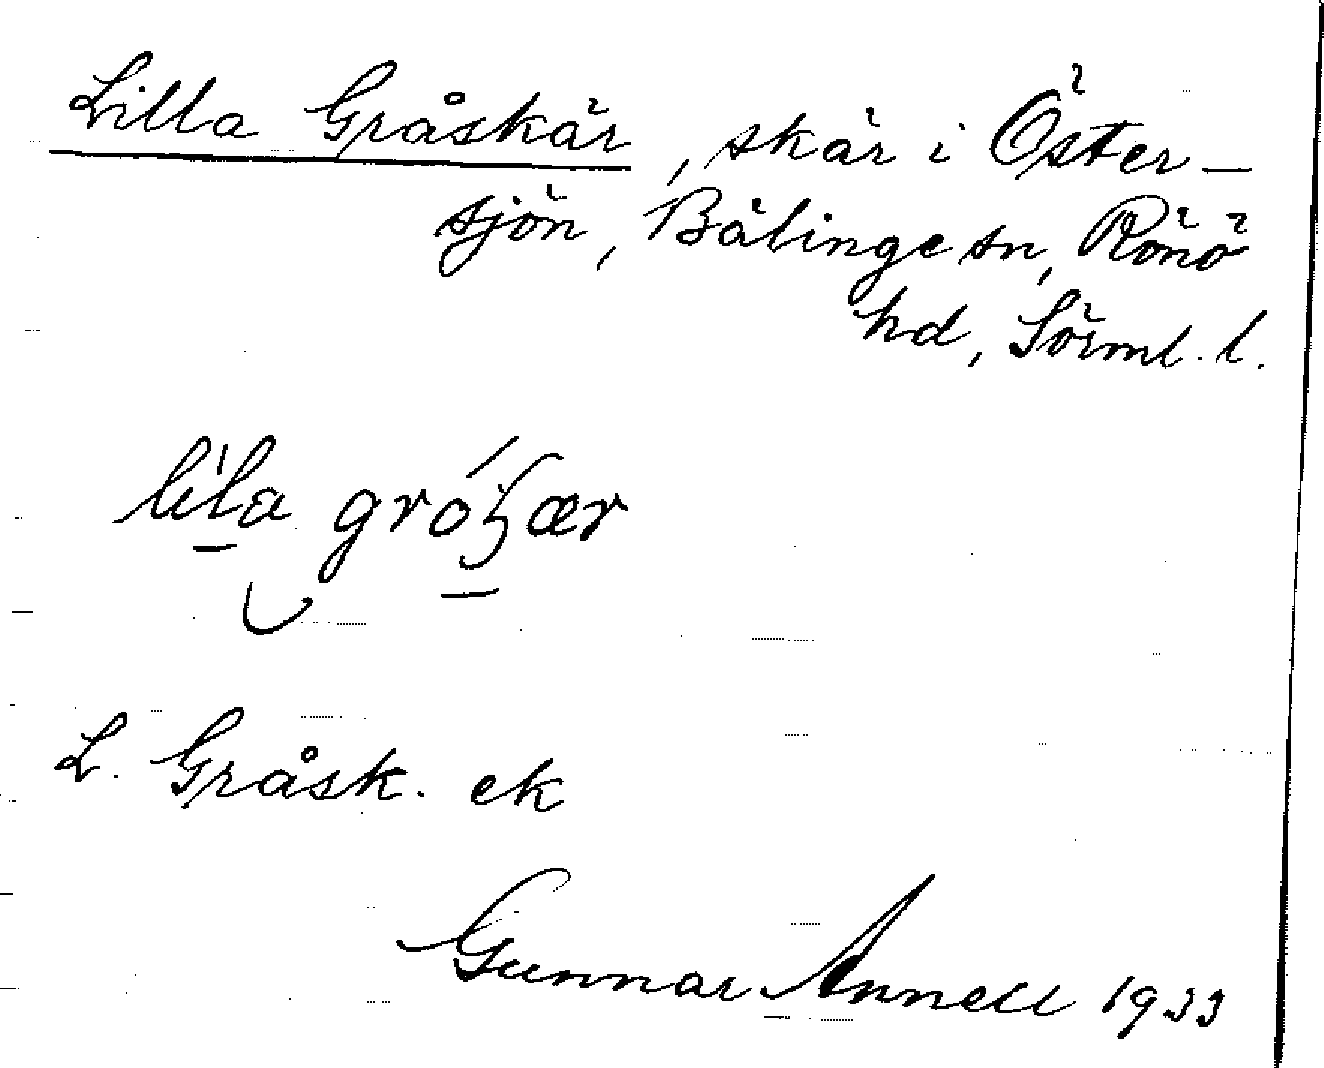 Lilla Gråskär, skär i Öster-
sjön, Bälinge sn, Rönö
hd, Sörml. l.
lila gróʃær
L. Gråsk. ek
Gunnar Annell 1933